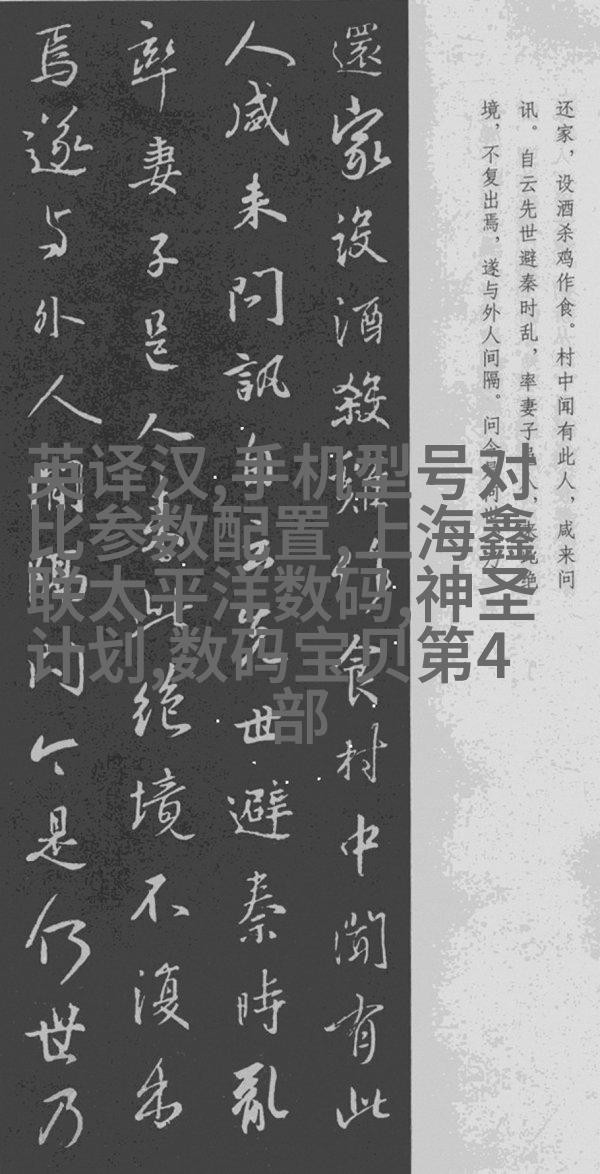 还家，设酒杀鸡作食。村中闻有此人，咸来问
讯。自云先世避秦时乱，率妻子邑人，来此绝
境，不复出焉，遂与外人间隔。问今是何世，乃
還家設酒殺雞作食村中聞有此
人咸来問訊自云先世避秦時亂
率妻子邑人来此絶境不復出
焉遂与外人間隔問今是何世乃
英译汉,手机型号对
比参数配置,上海鑫
联太平洋数码,神圣
计划,数码宝贝第4
部